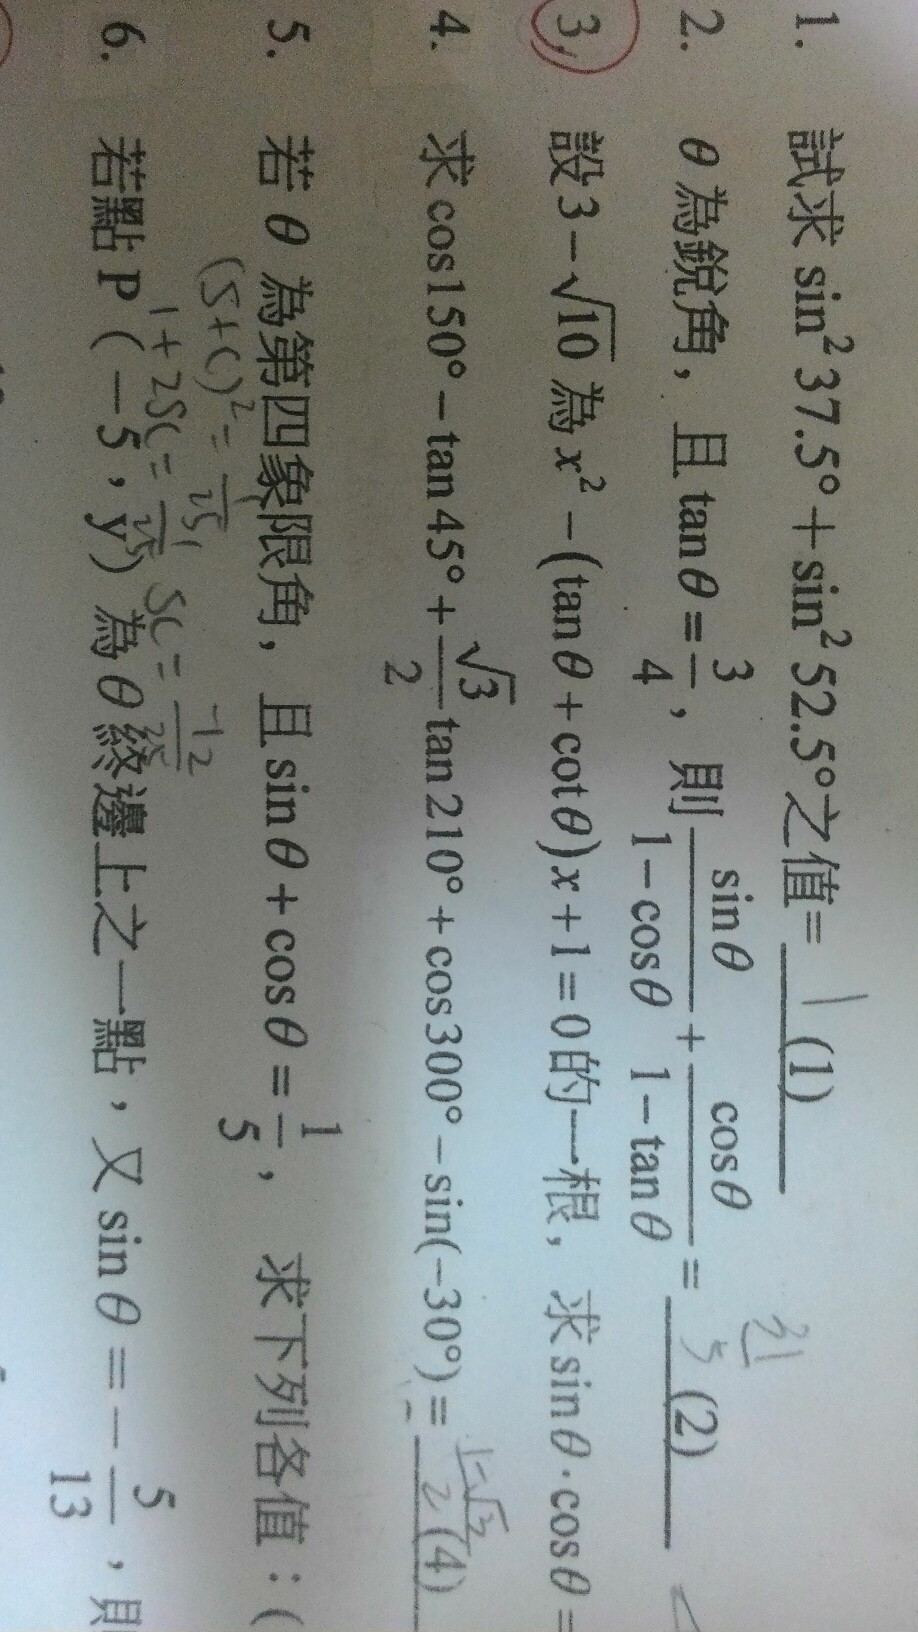 1. 試求 sin²37.5°+sin²52.5°之值= 1 (1)
2. θ 為銳角，且 tanθ=3/4，則 sinθ/(1−cosθ) + cosθ/(1−tanθ) = 31/5 (2)
3. 設3−√10 為 x²−(tanθ+cotθ)x+1=0的一根，求sinθ·cosθ=
4. 求cos150°−tan45°+√3/2 tan210°+cos300°−sin(−30°)= (4)
5. 若 θ 為第四象限角，且sinθ+cosθ=1/5， 求下列各值：(
(S+C)²=1/25
1+2SC=1/25 SC=-12/25
6. 若點P（−5，y）為θ終邊上之一點，又sinθ=−5/13，則